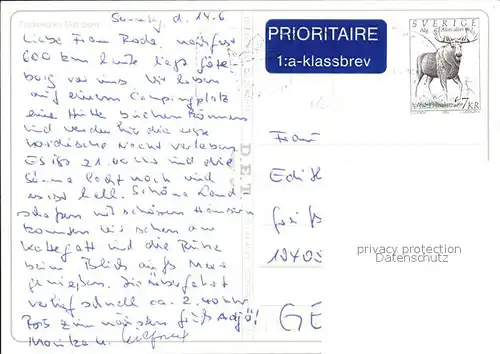 Sonntag d. 14.6
Liebe Frau Rode.
600 km
borg vor uns Wir haben
auf einem Campingplatz
eine Hütte buchen können
und werden hier die erste
nordische Nacht verleben.
Es ist 21.00 Uhr und die
Sonne lacht noch und
es ist hell. Schöne Land
schaften mit schönen Häusern
konnten wir sehen am
Kattegatt und die Ruhe
beim Blick aufs Meer
genießen. Die Überfahrt
verlief schnell ca. 2.40 Uhr
Bis zum nächsten
Monika u.
D.E.T.
PRIORITAIRE
1:a-klassbrev
SVERIGE
7 KR
Frau
Edith
privacy protection
Datenschutz
GE